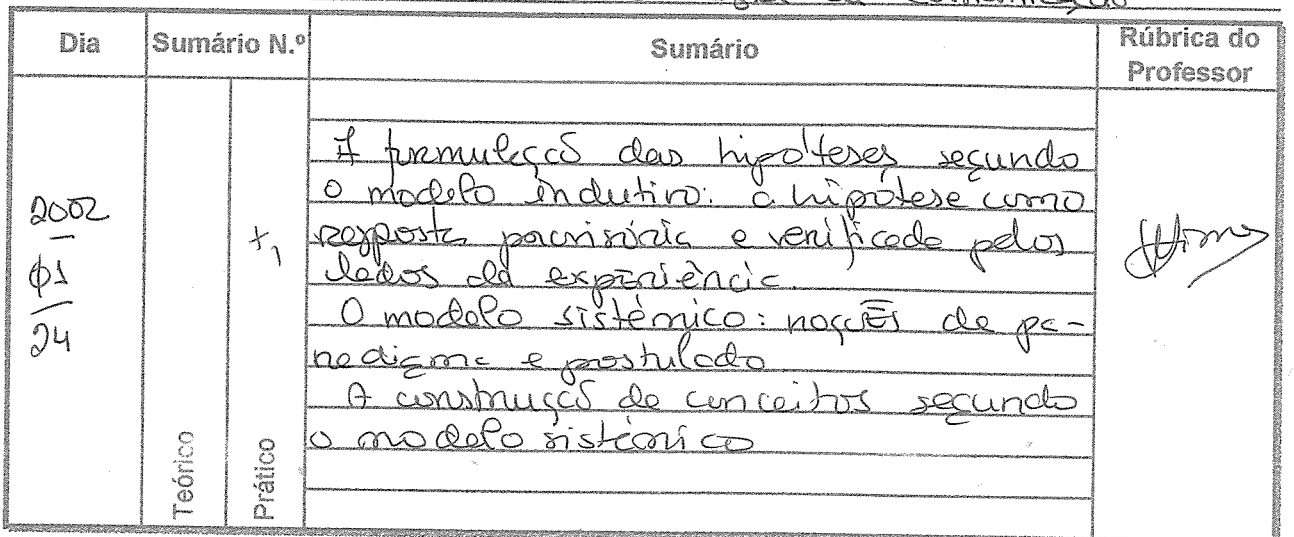 da Comunicação
Dia
Sumário N.º
Sumário
Rúbrica do
Professor
2002
01
24
Teórico
Prático
A formulação das hipóteses segundo
o modelo indutivo: a hipótese como
resposta provisória e verificada pelos
dados da experiência.
O modelo sistémico: noções de pa-
radigma e postulado
A construção de conceitos segundo
o modelo sistémico